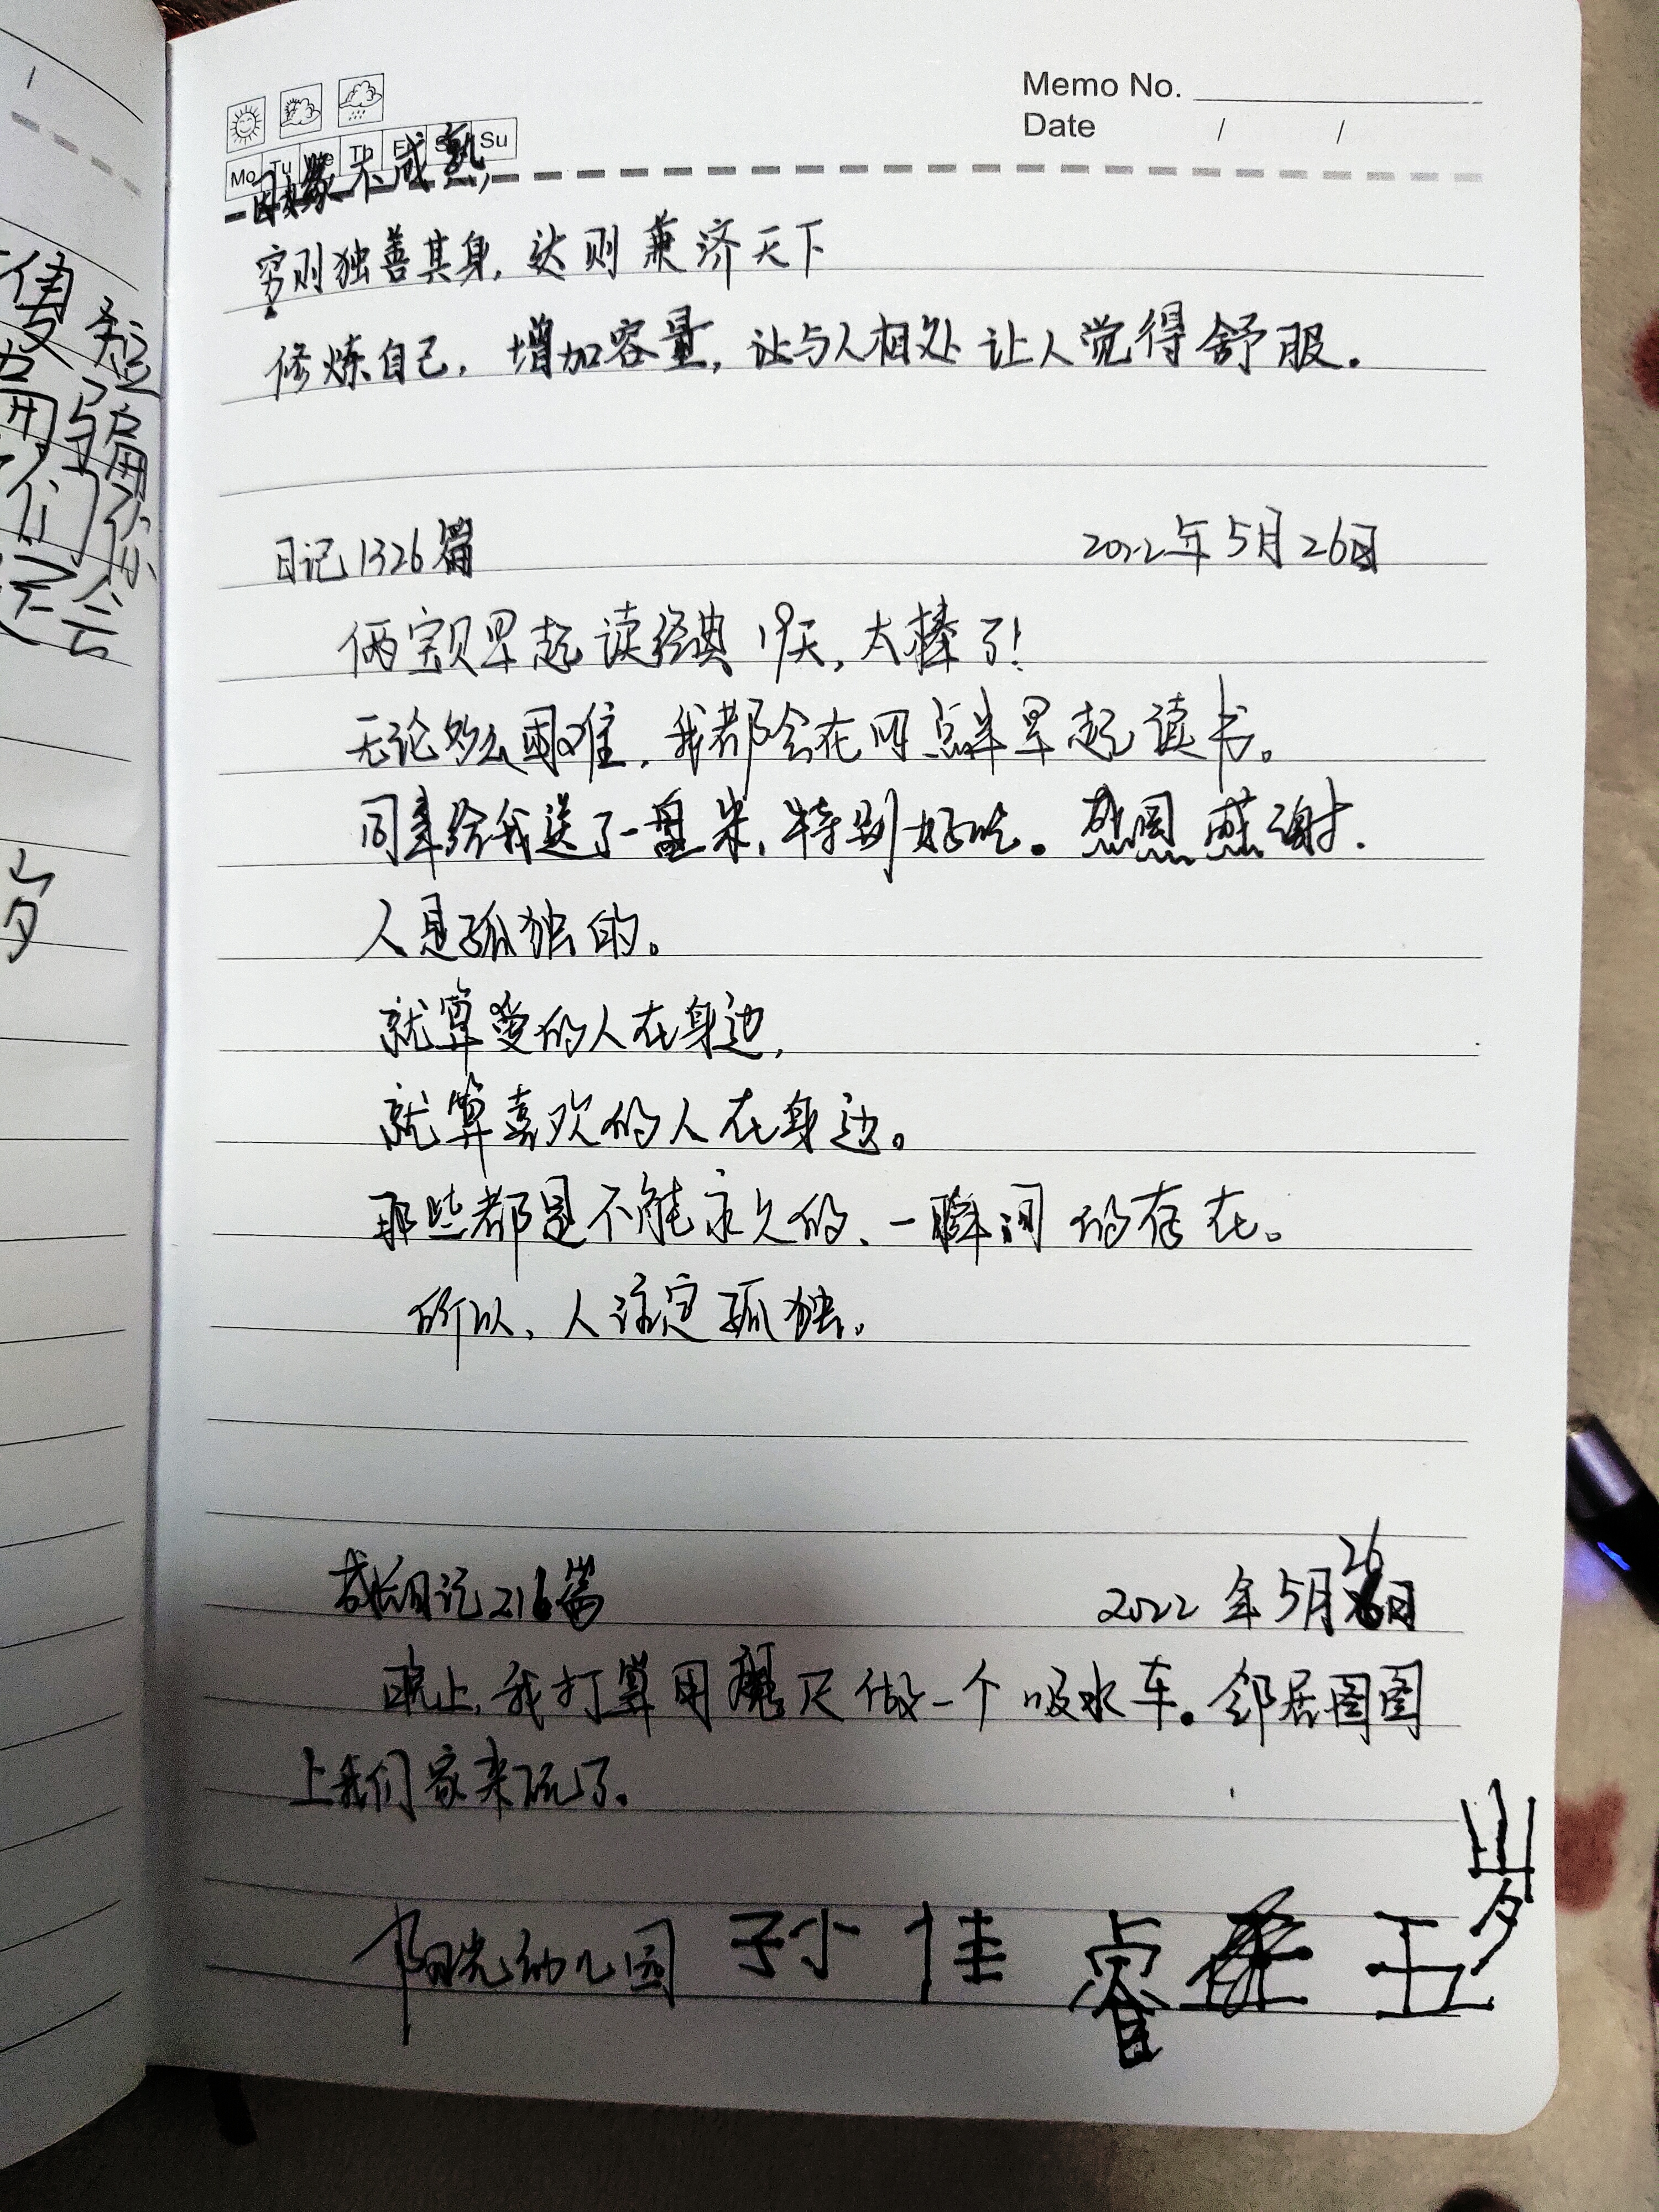 Memo No.
Date / /
Mo Tu We Th Fr Sa Su
因缘不成熟,
穷则独善其身,达则兼济天下
修炼自己,增加容量,让与人相处让人觉得舒服.
日记1326篇 2022年5月26日
俩宝贝早起读经典19天,太棒了!
无论多么困难,我都会在四点半早起读书。
同事给我送了一盘米,特别好吃。感恩感谢.
人是孤独的。
就算爱的人在身边,
就算喜欢的人在身边。
那些都是不能永久的、一瞬间的存在。
所以、人注定孤独。
成长日记216篇 2022年5月26日
晚上,我打算用魔尺做一个吸水车。邻居图图
上我们家来玩了.
阳光幼儿园 孙佳睿 五岁